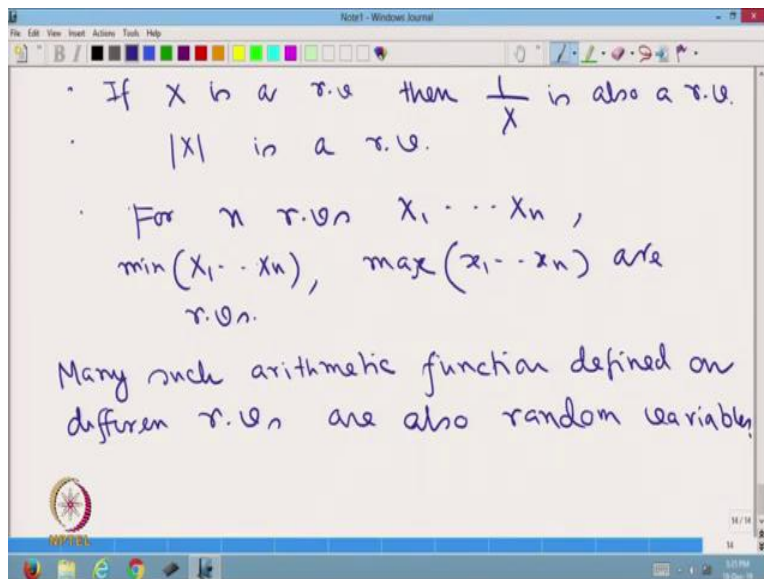 Note1 - Windows Journal
File Edit View Insert Actions Tools Help
B I
· If X is a r.v then 1/X is also a r.v.
· |X| is a r.v.
· For n r.vs X1 . . . Xn ,
min (X1 . . Xn), max (x1 . . xn) are
r.vs.
Many such arithmetic function defined on
differen r.vs are also random variables
NPTEL
14 / 14
14